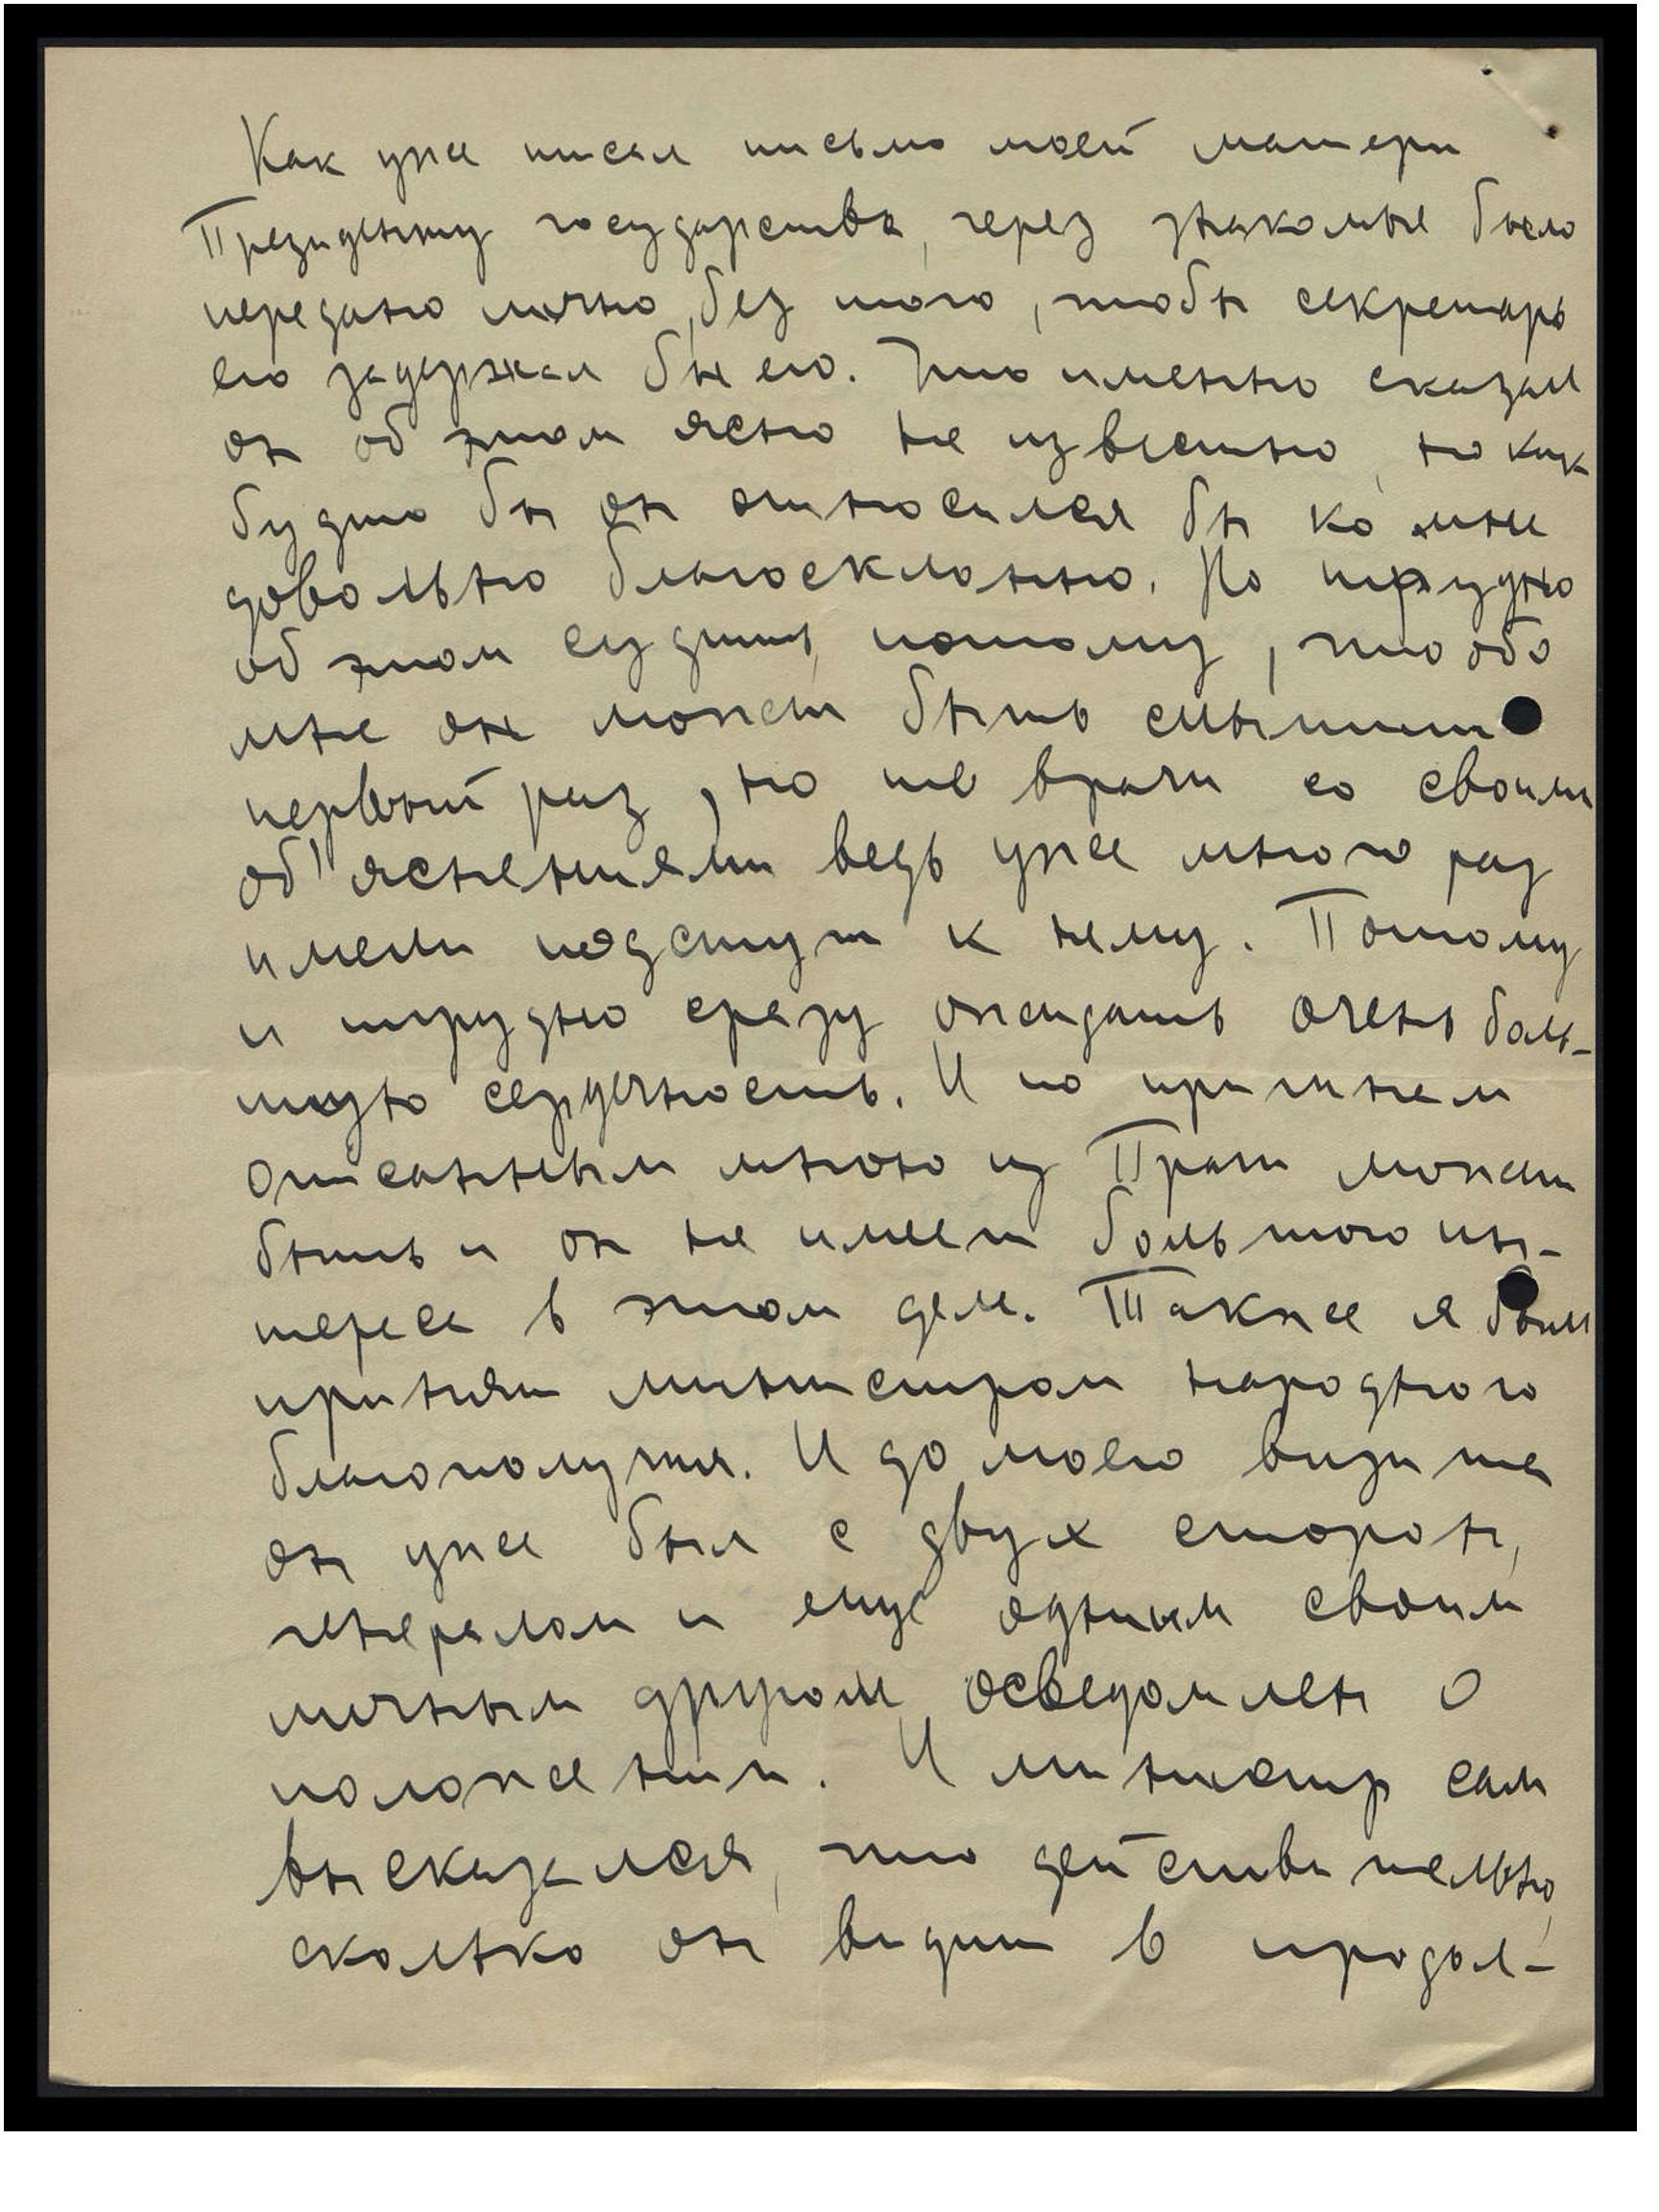 Как уже писал письмо моей матери
Президенту государства, через знакомые было
передано лично, без того, чтобы секретарь
его задержал бы его. Что именно сказал
он об этом ясно не известно, но как
будто бы он относился бы ко мне
довольно благосклонно. Но трудно
об этом судить, потому, что обо
мне он может быть слышит
первый раз, но те врачи со своими
об'яснениями ведь уже много раз
имели подступ к нему. Потому
и трудно сразу ожидать очень боль-
шую сердечность. И по причинем
описанным мною из Праги может
быть и он не имеет большого ин-
тереса в этом деле. Также я был
принят министром народного
благополучия. И до моего визита
он уже был с двух сторон,
генералом и еще одным своим
личным другом, осведомлен о
положении. И министр сам
высказался, что действительно,
сколько он видит в продол-